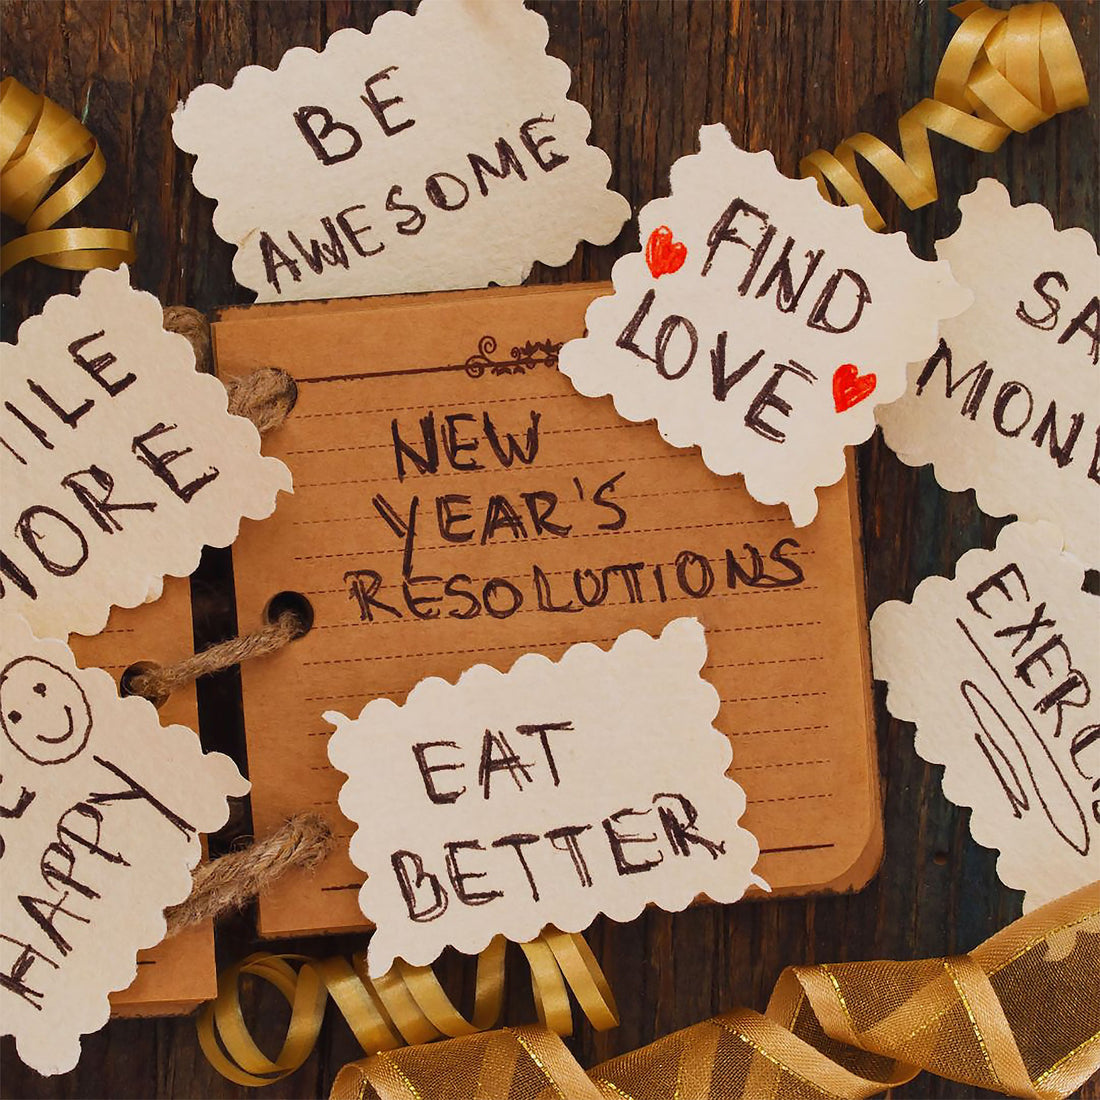 BE
AWESOME
FIND
LOVE
SA
MON
ILE
MORE
NEW
YEAR'S
RESOLUTIONS
HAPPY
EAT
BETTER
EXERC